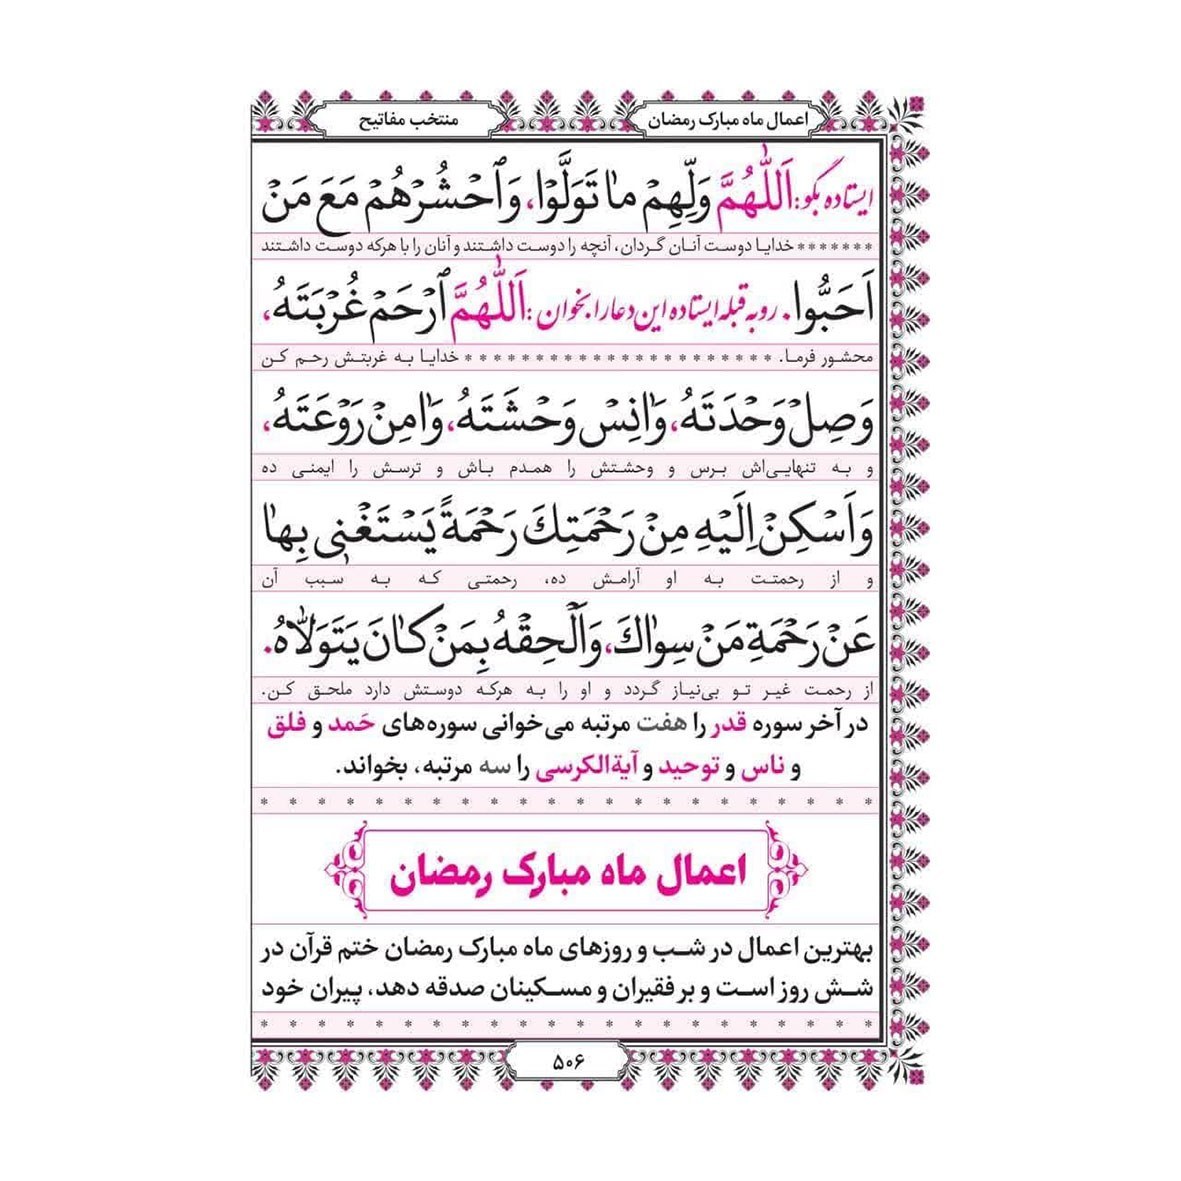 اعمال ماه مبارک رمضان
منتخب مفاتیح
ایستاده بگو: اَللّٰهُمَّ وَلِّهِمْ مٰا تَوَلَّوْا، وَٱحْشُرْهُمْ مَعَ مَنْ
******* خدایا دوست آنان گردان، آنچه را دوست داشتند و آنان را با هرکه دوست داشتند
اَحَبُّوا. رو به قبله ایستاده این دعا را بخوان: اَللّٰهُمَّ ٱرْحَمْ غُرْبَتَهُ،
محشور فرما. ********************** خدایا به غربتش رحم کن
وَصِلْ وَحْدَتَهُ، وَاٰنِسْ وَحْشَتَهُ، وَاٰمِنْ رَوْعَتَهُ،
و به تنهایی‌اش برس و وحشتش را همدم باش و ترسش را ایمنی ده
وَاَسْكِنْ اِلَيْهِ مِنْ رَحْمَتِكَ رَحْمَةً يَسْتَغْنٖى بِهٰا
و از رحمتت به او آرامش ده، رحمتی که به سبب آن
عَنْ رَحْمَةِ مَنْ سِوٰاكَ، وَاَلْحِقْهُ بِمَنْ كٰانَ يَتَوَلّٰاهُ.
از رحمت غیر تو بی‌نیاز گردد و او را به هرکه دوستش دارد ملحق کن.
در آخر سوره قدر را هفت مرتبه می‌خوانی سوره‌های حَمد و فلق
و ناس و توحید و آیةالکرسی را سه مرتبه، بخواند.
اعمال ماه مبارک رمضان
بهترین اعمال در شب و روزهای ماه مبارک رمضان ختم قرآن در
شش روز است و بر فقیران و مسکینان صدقه دهد، پیران خود
۵۰۶